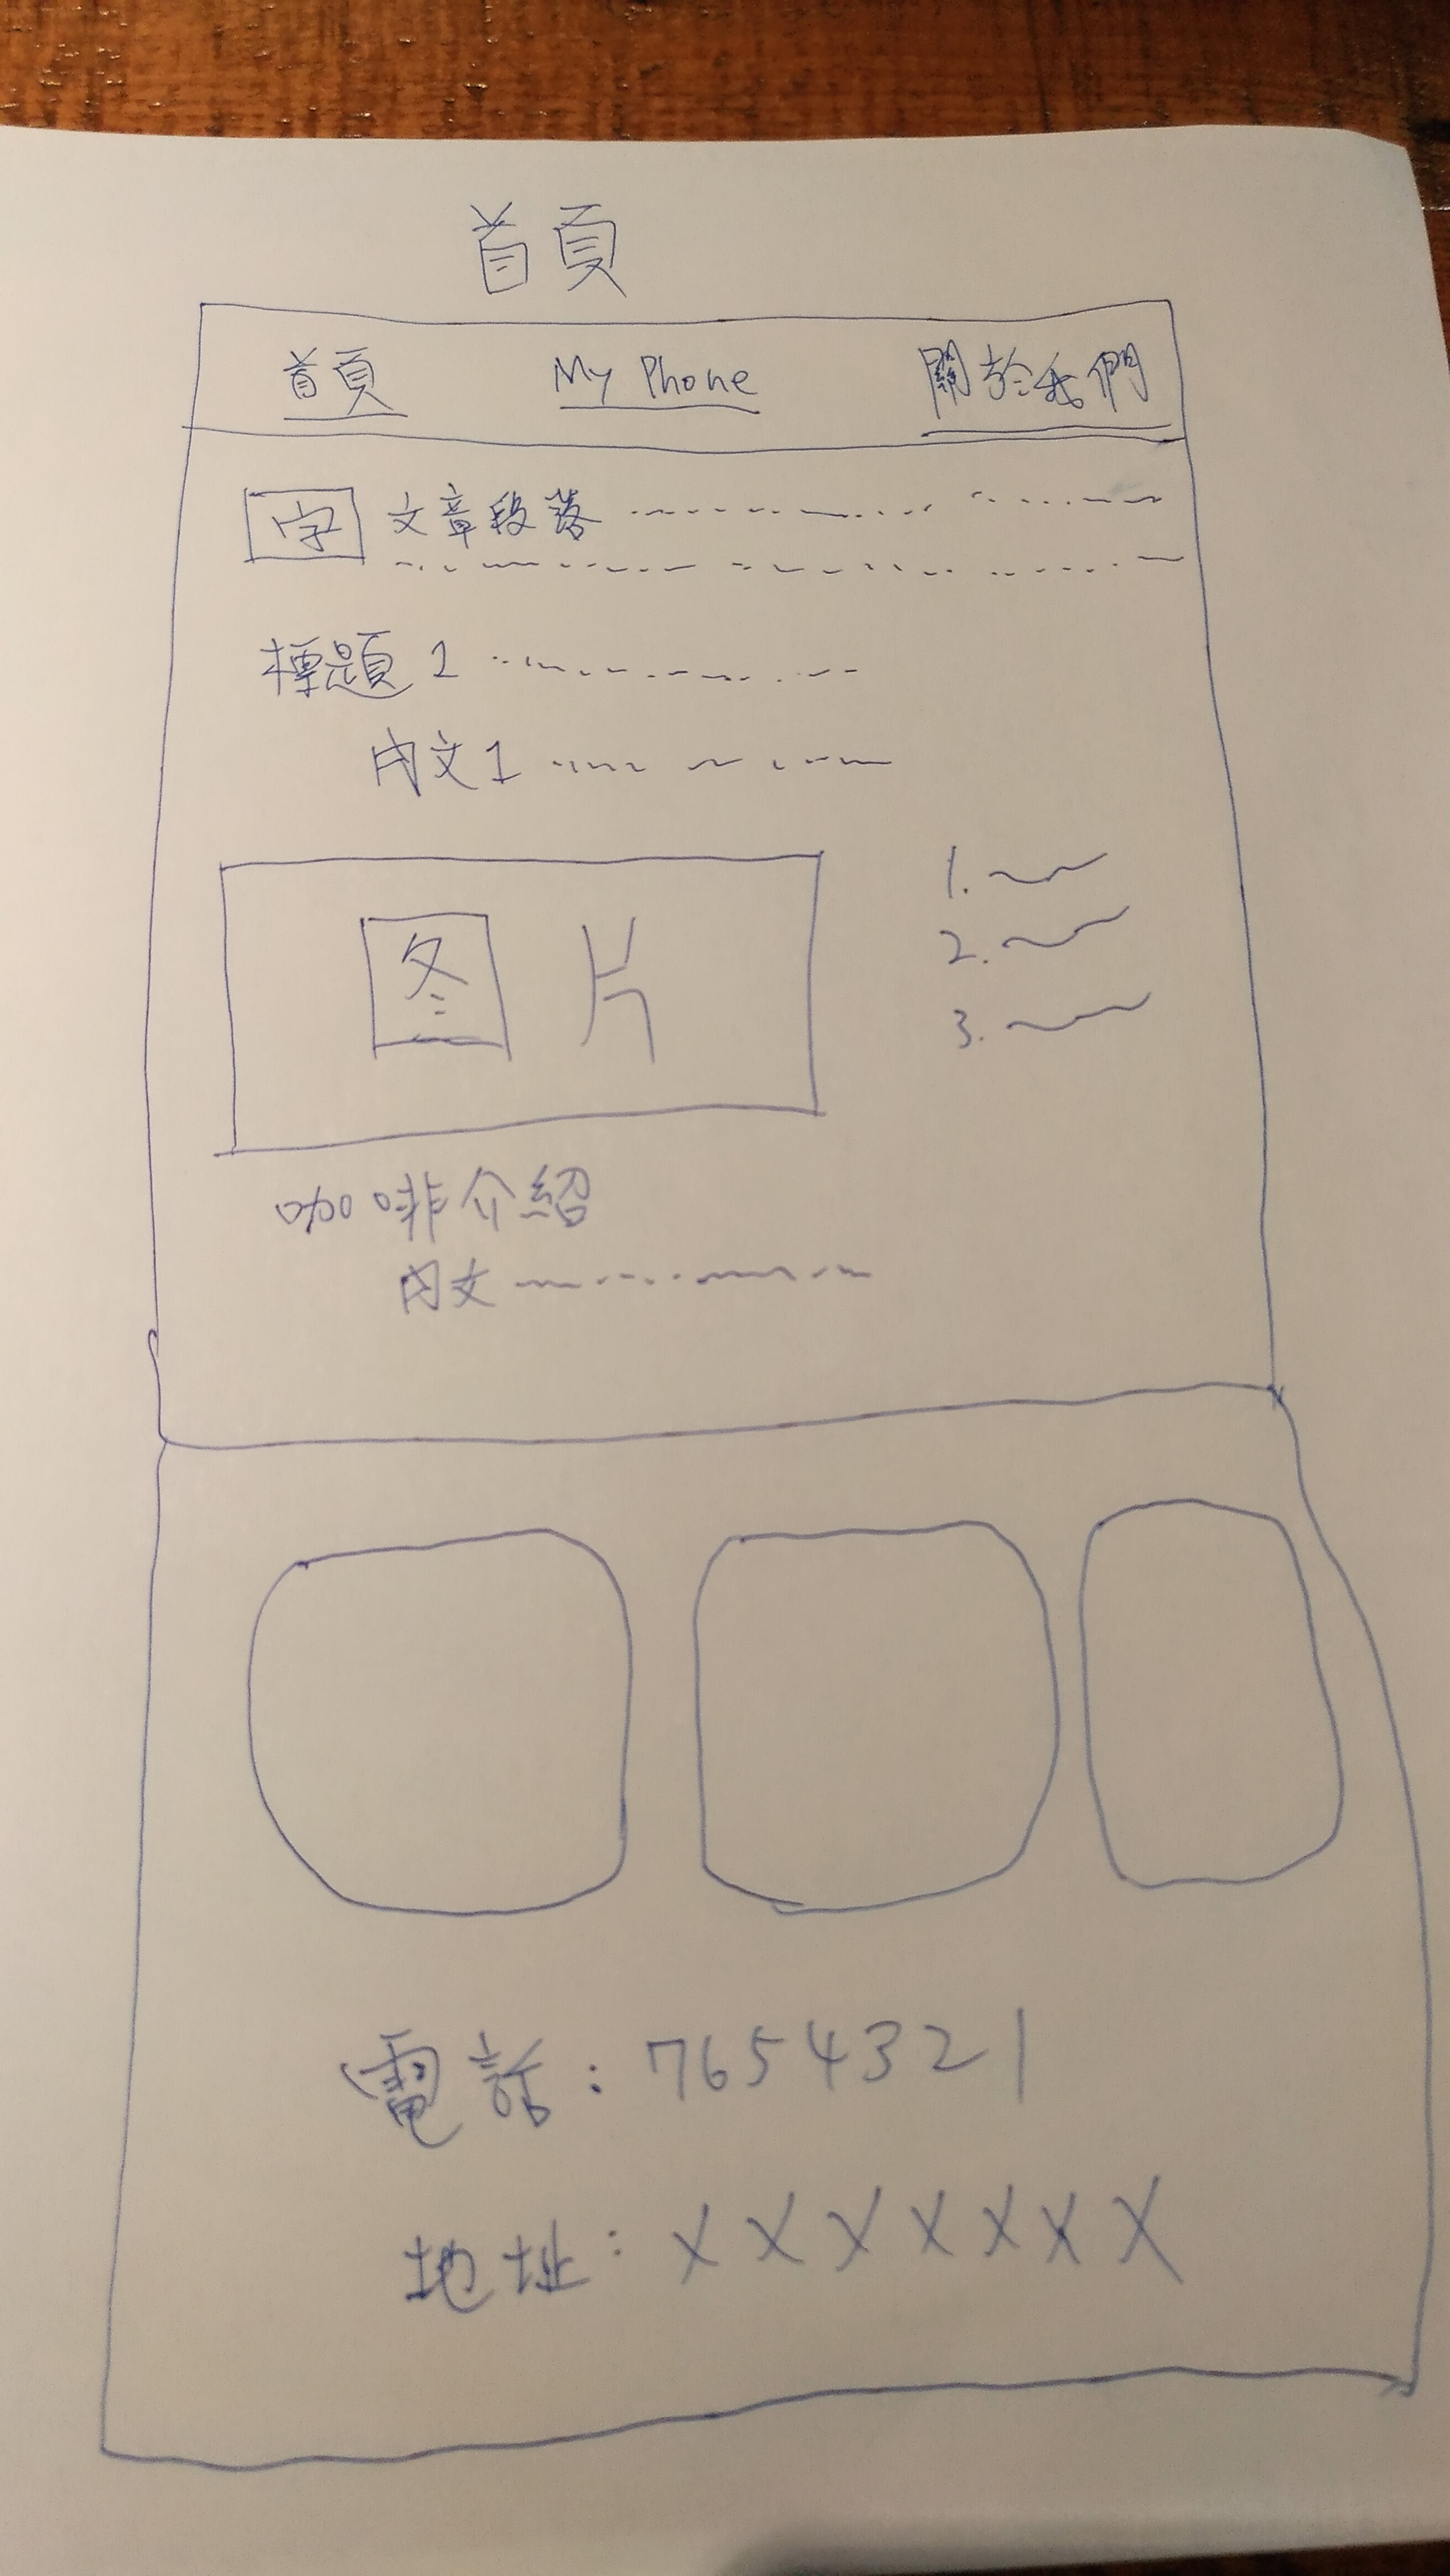 首頁
首頁 My Phone 關於我們
字 文章段落
標題 1
內文1
图片
1.
2.
3.
咖啡介紹
內文
電話：7654321
地址：XXXXXXX